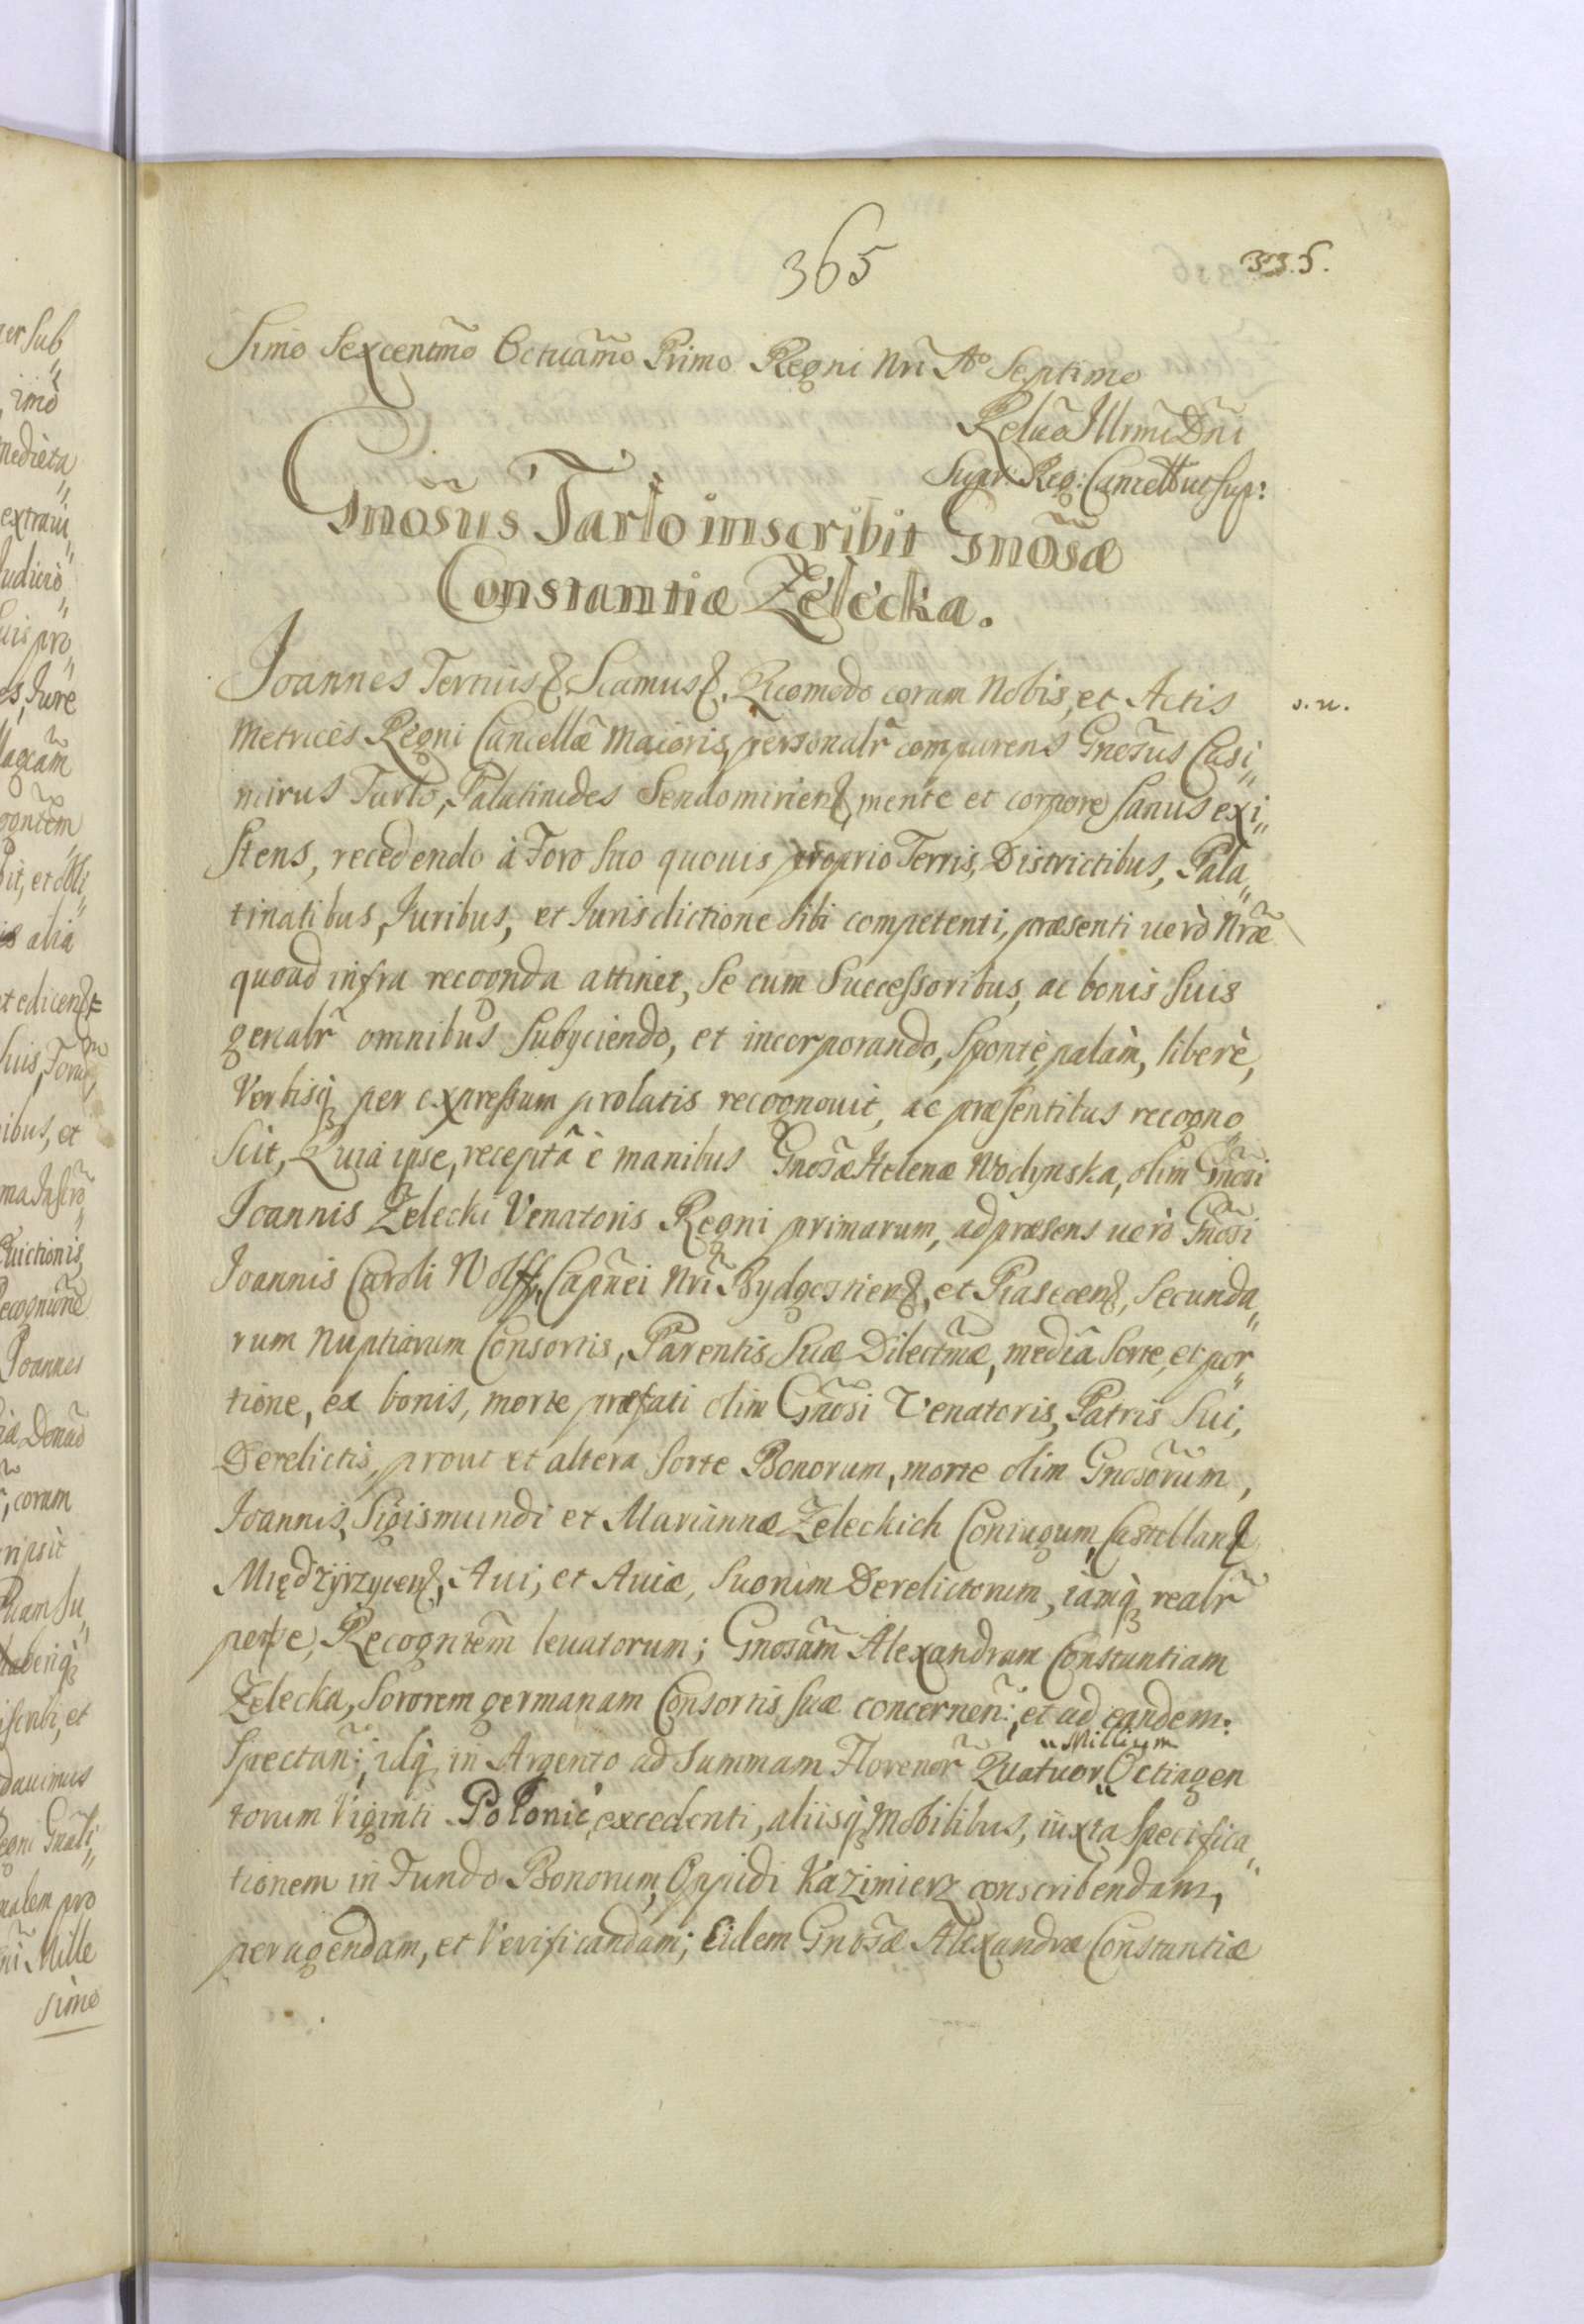 365
335.
Simo Sexcentm̃o Octuam̃o Primo Regni Nri A° Septimo
Relaõ Illrmi Dñi
Supr: Reg: Cancell ut sup:
Gnõsus Tarło inscribit Gnõsæ
Constantiæ Zelecka.
Joannes Tertius &, Sciamus &, Quomodo coram Nobis, et Actis
s. n.
Metrices Regni Cancellæ Maioris, personalr̃ comparens Gnosus Casi„
mirus Tarło, Palatinides Sendomirien&, mente et corpore sanus exi„
stens, recedendo à Foro suo quouis proprio Terris, Districtibus, Pala„
tinatibus, Juribus, et Jurisdictione sibi competenti, præsenti uerò Nræ
quoad infra recognda attinet, se cum Successoribus, ac bonis suis
genalr̃ omnibus subyciendo, et incorporando, sponte, palàm, liberè,
Verbisq̃ per expressum prolatis recognouit, ac præsentibus recogno„
scit, Quia ipse, receptâ è manibus Gnosæ Helenæ Wodynska, olim Gnosi
Joannis Zelecki Venatoris Regni primarum, ad præsens uerò Gnosi
Joannis Caroli Wolff, Capñei Nri Bydgostien&, et Piasecen&, secunda„
rum Nuptiarum Consortis, Parentis Suæ Dilectmæ, mediâ sorte, et por„
tione, ex bonis, morte præfati olim Gnosi Venatoris, Patris sui,
Derelictis, prout et altera sorte Bonorum, morte olim Gnosorum,
Joannis, Sigismundi et Mariannæ Zeleckich Coniugum, Castellan&
Międzyrzycen&, Aui, et Auiæ, suorum Derelictorum, iamq̃ realr̃
per se, Recogntem leuatorum; Gnosam Alexandram Constantiam
Zelecka, Sororem germanam Consortis suæ concernen:, et ad eandem:
Spectan:, idq̃ in Argento ad summam Florenor̃ Quatuor „Millium Octingen
torum Viginti Polonic̃ excedenti, aliisq̃ Mobilibus, iuxta specifica„
tionem in Fundo Bonorum, Oppidi Kazimierz conscribendam,
peragendam, et Verificandam; Eidem Gnosæ Alexandræ Constantiæ